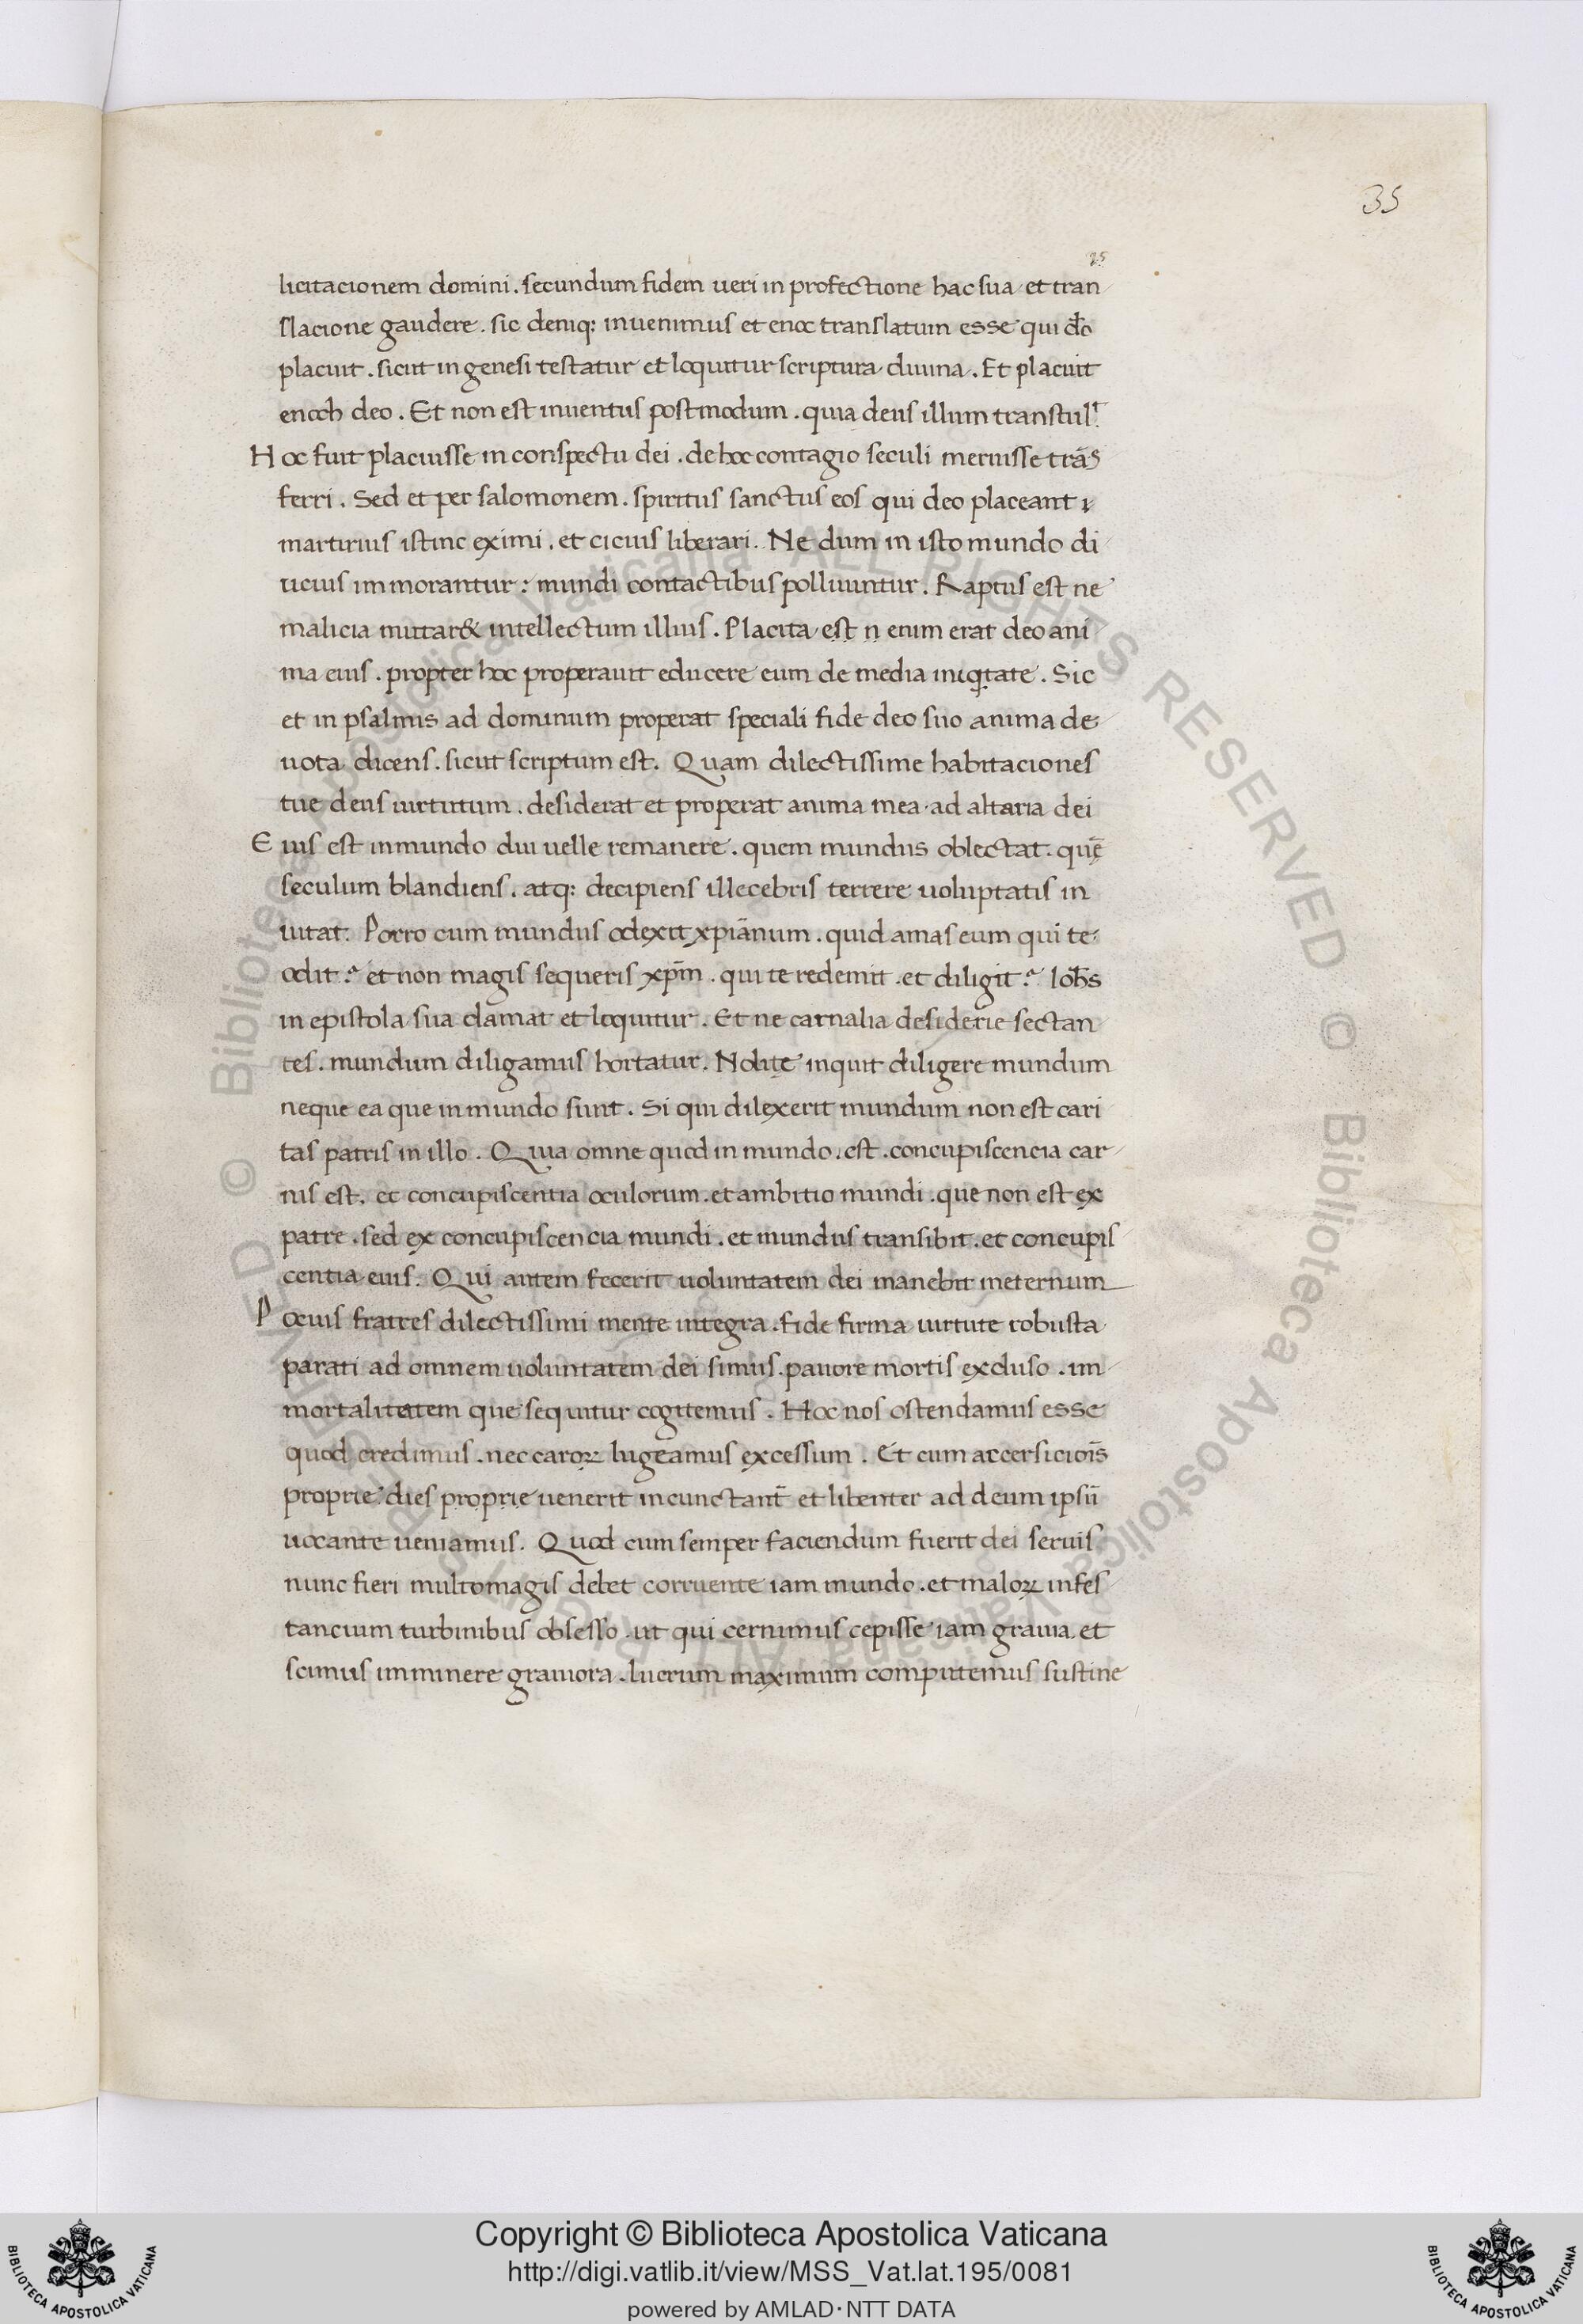 35
25
licitacionem domini . secundum fidem ueri in profectione hac sua et tran
slacione gaudere . sic deniq; inuenimus et enoc translatum esse qui dō
placuit . sicut in genesi testatur et loquitur scriptura diuina . Et placuit
enoch deo . Et non est inuentus postmodum . quia deus illum transtul
Hoc fuit placuisse in conspectu dei . de hoc contagio seculi meruisse trās
ferri . Sed et per salomonem . spiritus sanctus eos qui deo placeant
martirius istinc eximi . et cicius liberari . Ne dum in isto mundo di
ucius immorantur : mundi contactibus polluuntur . Raptus est ne
malicia mittar& intellectum illius . Placita est n enim erat deo ani
ma eius . propter hoc properauit educere eum de media iniqtate . Sic
et in psalmis ad dominum properat speciali fide deo suo anima de
uota dicens . sicut scriptum est . Quam dilectissime habitaciones
tue deus uirtutum . desiderat et properat anima mea ad altaria dei
Eius est in mundo diu uelle remanere . quem mundus oblectat . quē
seculum blandiens . atq; decipiens illecebris terrere uoluptatis in
uitat . Porro cum mundus odexit xpiānum . quid amas eum qui te
odit ? et non magis sequeris xpm̄ . qui te redemit . et diligit ? Iohs̄
in epistola sua clamat et loquitur . Et ne carnalia desiderie sectan
tes . mundum diligamus hortatur . Nolite inquit diligere mundum
neque ea que in mundo sunt . Si qui dilexerit mundum non est cari
tas patris in illo . Quia omne quod in mundo . est . concupiscencia car
nis est . et concupiscentia oculorum . et ambitio mundi . que non est ex
patre . sed ex concupiscencia mundi . et mundus transibit . et concupis
centia eius . Qui autem fecerit uoluntatem dei manebit in eternum
Pocius fratres dilectissimi mente integra . fide firma uirtute robusta
parati ad omnem uoluntatem dei simus . pauore mortis excluso . im
mortalitatem que sequitur cogitemus . Hoc nos ostendamus esse
quod credimus . nec caroꝝ lugeamus excessum . Et cum accersiciōis
proprie dies proprie uenerit incunctant̄ et libenter ad deum ipsū
uocante ueniamus . Quod cum semper faciendum fuerit dei seruis
nunc fieri multo magis debet corruente iam mundo . et maloꝝ infes
tancium turbinibus obsesso . ut qui cernimus cepisse iam grauia et
scimus imminere grauiora . lucrum maximum computemus sustine
Copyright © Biblioteca Apostolica Vaticana
http://digi.vatlib.it/view/MSS_Vat.lat.195/0081
powered by AMLAD·NTT DATA